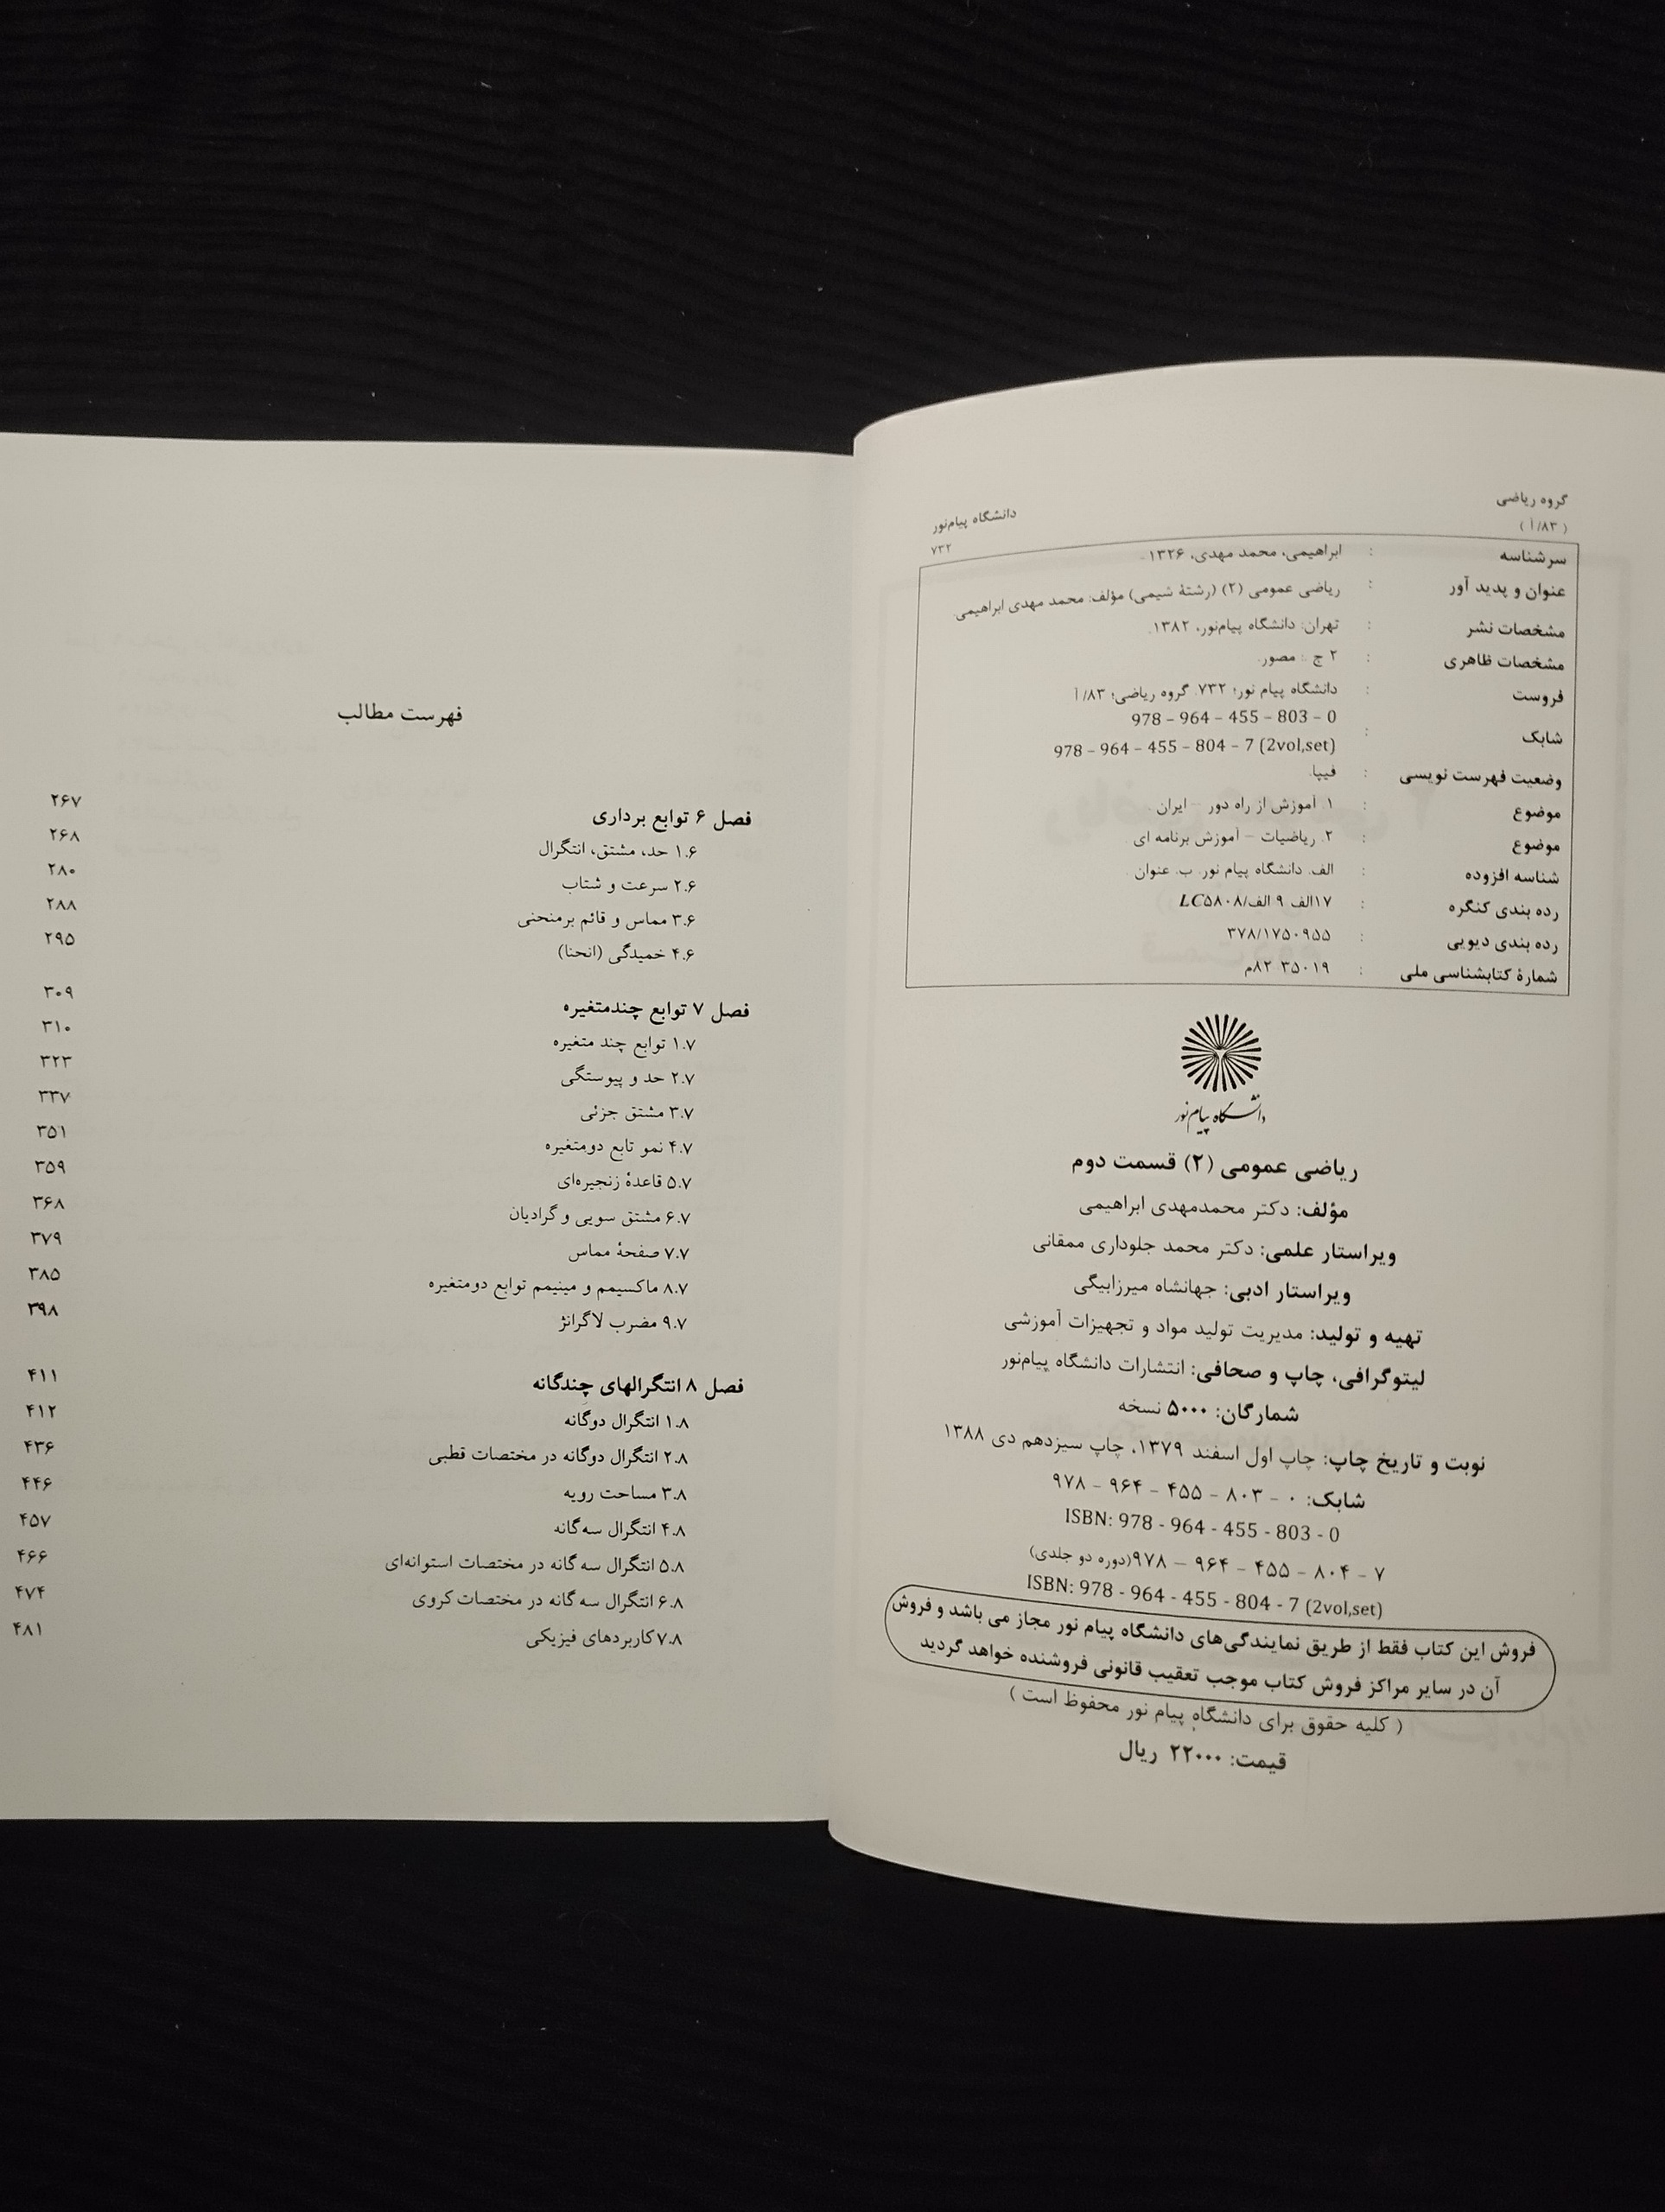 گروه ریاضی
( ۸۳/ آ )
دانشگاه پیام‌نور
۷۳۲
سرشناسه : ابراهیمی، محمد مهدی، ۱۳۲۶ -
عنوان و پدید آور : ریاضی عمومی (۲) (رشتهٔ شیمی) مؤلف: محمد مهدی ابراهیمی.
مشخصات نشر : تهران: دانشگاه پیام‌نور، ۱۳۸۲.
مشخصات ظاهری : ۲ ج .: مصور.
فروست : دانشگاه پیام نور؛ ۷۳۲. گروه ریاضی؛ ۸۳/ آ
شابک : 978 – 964 – 455 – 803 – 0
978 – 964 – 455 – 804 – 7 (2vol,set)
وضعیت فهرست نویسی : فیپا.
موضوع : ۱. آموزش از راه دور – ایران .
موضوع : ۲. ریاضیات – آموزش برنامه ای .
شناسه افزوده : الف. دانشگاه پیام نور. ب. عنوان .
رده بندی کنگره : ۱۷الف ۹ الف/LC۵۸۰۸
رده بندی دیویی : ۳۷۸/۱۷۵۰۹۵۵
شمارهٔ کتابشناسی ملی : ۳۵۰۱۹-۸۲م
دانشگاه پیام نور
ریاضی عمومی (۲) قسمت دوم
مؤلف: دکتر محمدمهدی ابراهیمی
ویراستار علمی: دکتر محمد جلوداری ممقانی
ویراستار ادبی: جهانشاه میرزابیگی
تهیه و تولید: مدیریت تولید مواد و تجهیزات آموزشی
لیتوگرافی، چاپ و صحافی: انتشارات دانشگاه پیام‌نور
شمارگان: ۵۰۰۰ نسخه
نوبت و تاریخ چاپ: چاپ اول اسفند ۱۳۷۹، چاپ سیزدهم دی ۱۳۸۸
شابک: ۰ – ۸۰۳ – ۴۵۵ – ۹۶۴ – ۹۷۸
ISBN: 978 - 964 - 455 - 803 - 0
۷ – ۸۰۴ – ۴۵۵ – ۹۶۴ – ۹۷۸(دوره دو جلدی)
ISBN: 978 - 964 - 455 - 804 - 7 (2vol,set)
فروش این کتاب فقط از طریق نمایندگی‌های دانشگاه پیام نور مجاز می باشد و فروش
آن در سایر مراکز فروش کتاب موجب تعقیب قانونی فروشنده خواهد گردید
( کلیه حقوق برای دانشگاه پیام نور محفوظ است )
قیمت: ۲۲۰۰۰ ریال
فهرست مطالب
فصل ۶ توابع برداری ۲۶۷
۱.۶ حد، مشتق، انتگرال ۲۶۸
۲.۶ سرعت و شتاب ۲۸۰
۳.۶ مماس و قائم برمنحنی ۲۸۸
۴.۶ خمیدگی (انحنا) ۲۹۵
فصل ۷ توابع چندمتغیره ۳۰۹
۱.۷ توابع چند متغیره ۳۱۰
۲.۷ حد و پیوستگی ۳۲۳
۳.۷ مشتق جزئی ۳۳۷
۴.۷ نمو تابع دومتغیره ۳۵۱
۵.۷ قاعدهٔ زنجیره‌ای ۳۵۹
۶.۷ مشتق سویی و گرادیان ۳۶۸
۷.۷ صفحهٔ مماس ۳۷۹
۸.۷ ماکسیمم و مینیمم توابع دومتغیره ۳۸۵
۹.۷ مضرب لاگرانژ ۳۹۸
فصل ۸ انتگرالهای چندگانه ۴۱۱
۱.۸ انتگرال دوگانه ۴۱۲
۲.۸ انتگرال دوگانه در مختصات قطبی ۴۳۶
۳.۸ مساحت رویه ۴۴۶
۴.۸ انتگرال سه‌گانه ۴۵۷
۵.۸ انتگرال سه گانه در مختصات استوانه‌ای ۴۶۶
۶.۸ انتگرال سه گانه در مختصات کروی ۴۷۴
۷.۸ کاربردهای فیزیکی ۴۸۱